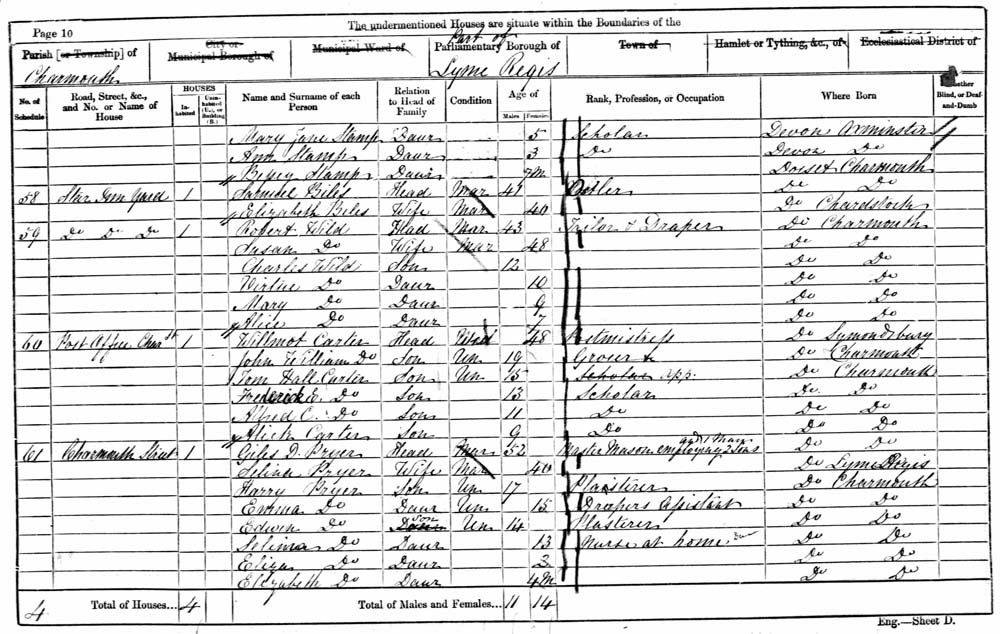 Page 10 The undermentioned Houses are situate within the Boundaries of the
Parish [or Township] of City or Municipal Borough of Municipal Ward of Part of Parliamentary Borough of Town of Hamlet or Tything, &c., of Ecclesiastical District of
Charmouth Lyme Regis
No. of Schedule Road, Street, &c., and No. or Name of House HOUSES Inhabited Uninhabited (U.), or Building (B.) Name and Surname of each Person Relation to Head of Family Condition Age of Males Females Rank, Profession, or Occupation Where Born Whether Blind, or Deaf-and-Dumb
Mary Jane Stamp Daur 5 Scholar Devon Axminster
Ann Stamp Daur 3 Do Devon Do
Stamp Daur 7m Dorset Charmouth
58 Star Inn Yard 1 Samuel Biles Head Mar 41 Ostler Do Do
Elizabeth Biles Wife Mar 40 Do Chardstock
59 Do Do Do 1 Robert Wild Head Mar 43 Tailor & Draper Do Charmouth
Susan Do Wife Mar 48 Do Do
Charles Wild Son 12 Do Do
Virtue Do Daur 10 Do Do
Mary Do Daur 9 Do Do
Alice Do Daur 7 Do Do
60 Post Office Char St 1 Willmot Carter Head Wid 48 Postmistress Do Symondsbury
John William Do Son Un 19 Grocer Do Charmouth
Tom Hall Carter Son Un 15 Scholar app. Do Charmouth
Frederick E. Do Son 13 Scholar Do Do
Alfred C. Do Son 11 Do Do Do
Alick Carter Son 9 Do Do Do
61 Charmouth Street 1 Giles D. Pryer Head Mar 52 Master Mason employing 2 Sons and 1 Man Do Do
Selina Pryer Wife Mar 40 Do Lyme Regis
Harry Pryer Son Un 17 Plasterer Do Charmouth
Emma Do Daur Un 15 Drapers Assistant Do Do
Edwin Do Son Un 14 Plasterer Do Do
Selina Do Daur 13 Nurse at home Do Do
Eliza Do Daur 2 Do Do
Elizabeth Do Daur 4m Do Do
4 Total of Houses... 4 Total of Males and Females... 11 14
Eng.—Sheet D.